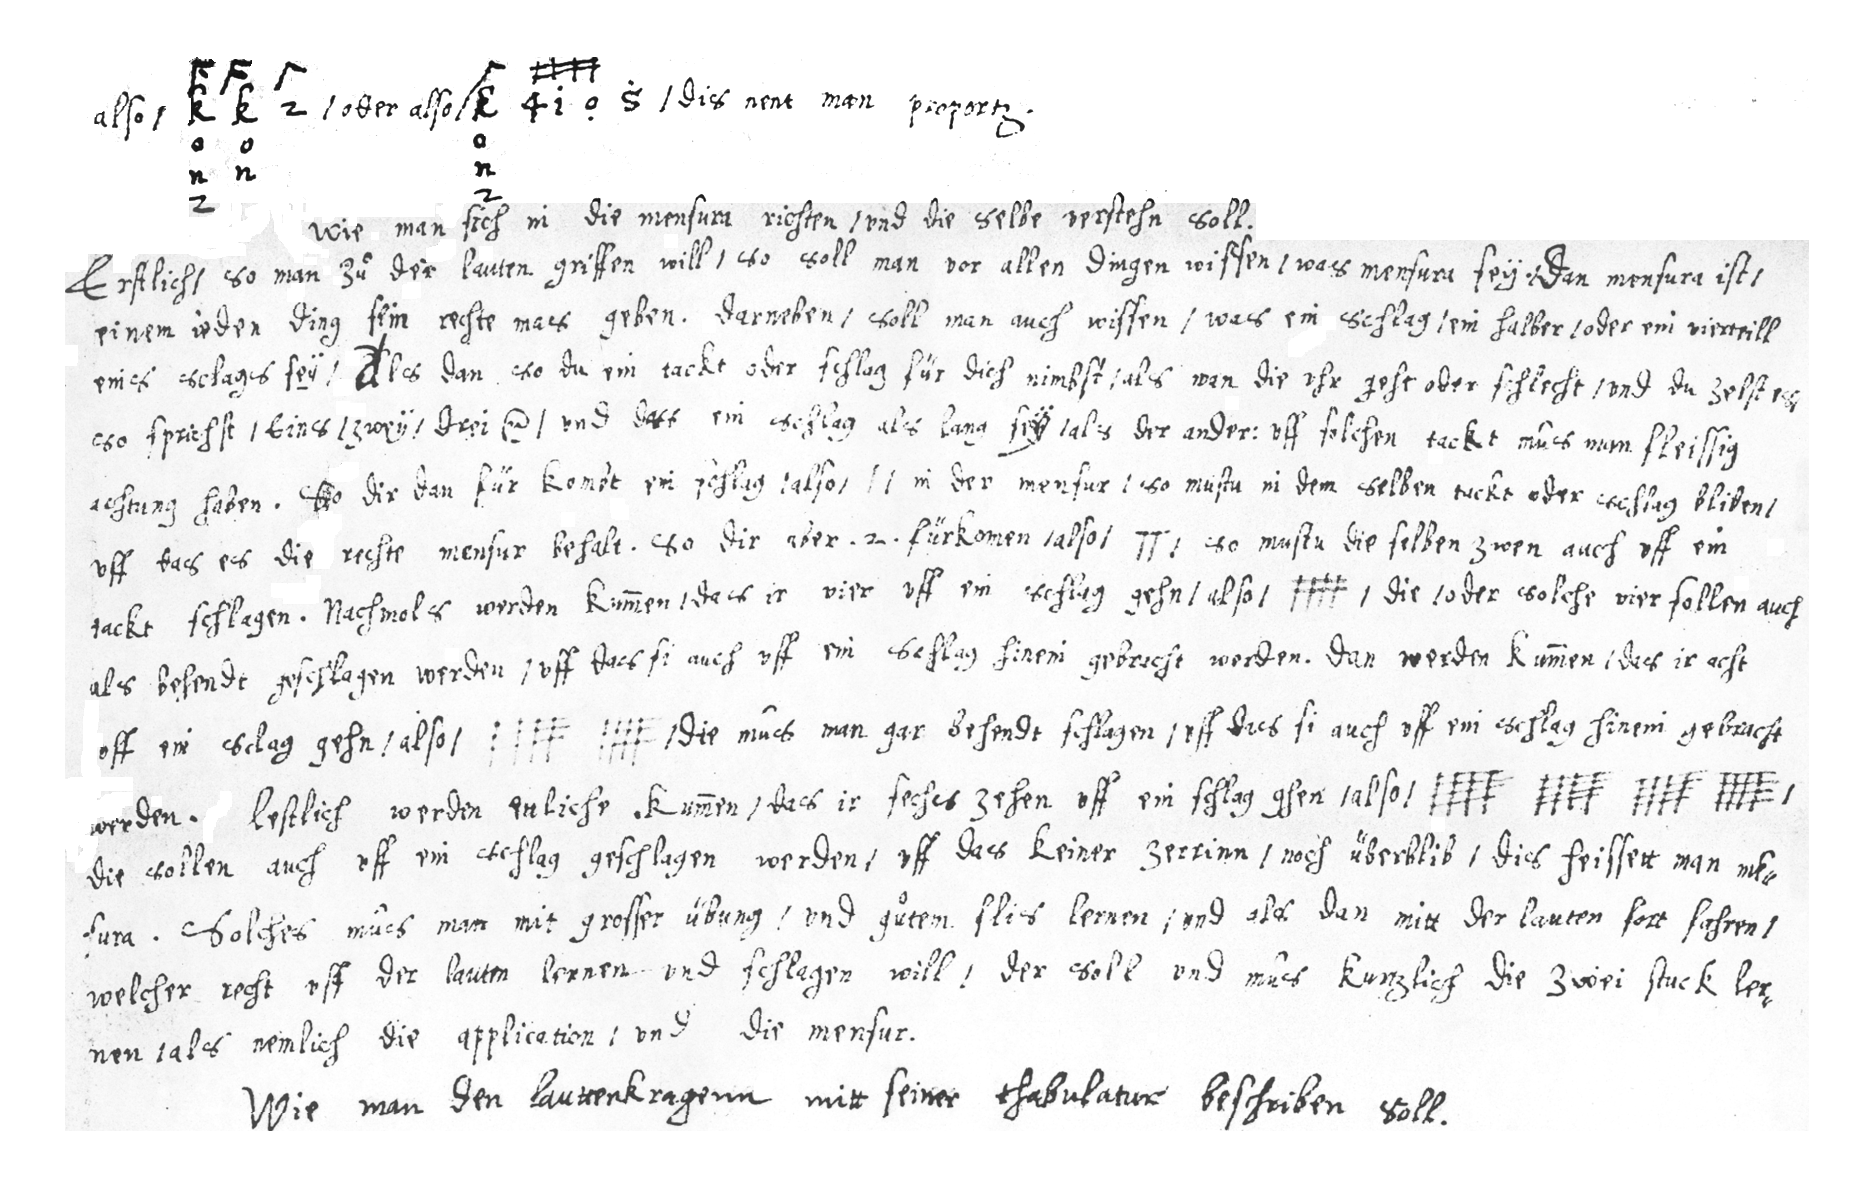 also / k k 2 / oder also / k 4 i o s / dis nent man proportz.
o o o
n n n
2 2
Wie man sich in die mensura richten / vnd die selbe verstehn soll.
Erstlich / so man zů der lauten griffen will / so soll man vor allen dingen wissen / was mensura seÿ / Dan mensura ist /
einem ieden ding sein rechte mass geben. darneben / soll man auch wissen / was ein schlag / ein halber / oder ein vierteill
eines sclages seÿ / Als dan so du ein tackt oder schlag für dich nimbst / als wan die vhr geht oder schlecht / vnd du zelst es,
so sprichst / Eins / zweÿ / drei / vnd dass ein schlag als lang seÿ / als der ander: vff solchen tackt můs man fleissig
achtung haben. So dir dan für kombt ein schlag / also / | / in der mensur / so mustu in dem selben tackt oder schlag bliben /
vff das es die rechte mensur behalt. So dir aber .2. fürkomen / also / / so mustu die selben zwen auch vff ein
tackt schlagen. Nachmols werden kum̄en / das ir vier vff ein schlag gehn / also / / die / oder solche vier sollen auch
als behendt geschlagen werden / vff dass si auch vff ein schlag hinein gebracht werden. Dan werden kum̄en / das ir acht
vff ein sclag gehn / also / / die můs man gar behendt schlagen / vff dass si auch vff ein schlag hinein gebracht
werden. Lestlich werden enliche kum̄en / dass ir sechs zehen vff ein schlag ghen / also / /
die sollen auch vff ein schlag geschlagen werden / vff dass keiner zerrinn / noch überblib / dis heissett man mē-
sura. Solches můs man mit grosser übung / vnd gůtem flis lernen / vnd als dan mitt der lauten fort fahren /
welcher recht vff der lauten lernen vnd schlagen will / der soll vnd můs kurzlich die zwei stuck ler-
nen / als nemlich die application / vnd die mensur.
Wie man den lauttenkragenn mitt seiner thabulatur beschriben soll.